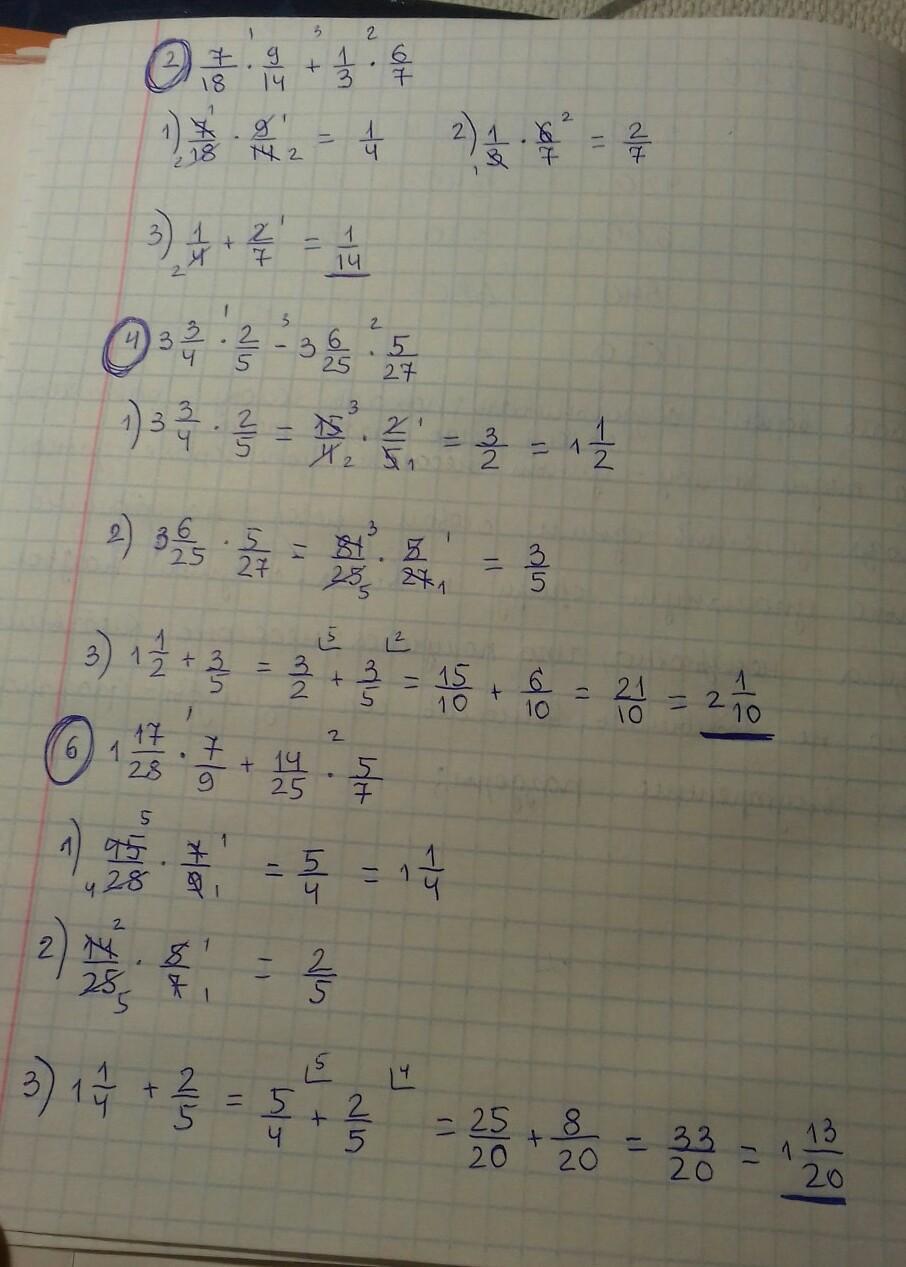 2) 7/18 · 9/14 + 1/3 · 6/7
1) 7/18 · 9/14 = 1/4   2) 1/3 · 6/7 = 2/7
3) 1/4 + 2/7 = 1/14
4) 3 3/4 · 2/5 - 3 6/25 · 5/27
1) 3 3/4 · 2/5 = 15/4 · 2/5 = 3/2 = 1 1/2
2) 3 6/25 · 5/27 = 81/25 · 5/27 = 3/5
3) 1 1/2 + 3/5 = 3/2 + 3/5 = 15/10 + 6/10 = 21/10 = 2 1/10
6) 1 17/28 · 7/9 + 14/25 · 5/7
1) 45/28 · 7/9 = 5/4 = 1 1/4
2) 14/25 · 5/7 = 2/5
3) 1 1/4 + 2/5 = 5/4 + 2/5 = 25/20 + 8/20 = 33/20 = 1 13/20